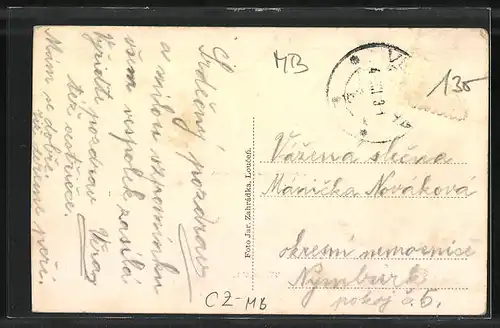 Srdečný pozdrav
a milou vzpomínku
všem vespolek zasílá
Věra
Vyřiďte pozdrav
též sestřičce.
Mám se dobře.
Foto Jar. Zahrádka, Loučeň.
MB
130
Vážená slečna
Mánička Nováková
okresní nemocnice
Nymburk
pokoj č. 6.
CZ-MB